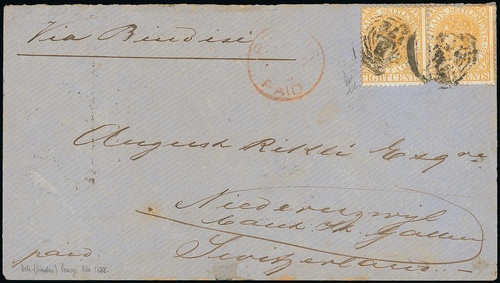 Via Brindisi
PAID
EIGHT CENTS
CENTS
August Rikli Esqre
Niederuzwyl
Cant. St. Gallen
Switzerland
paid